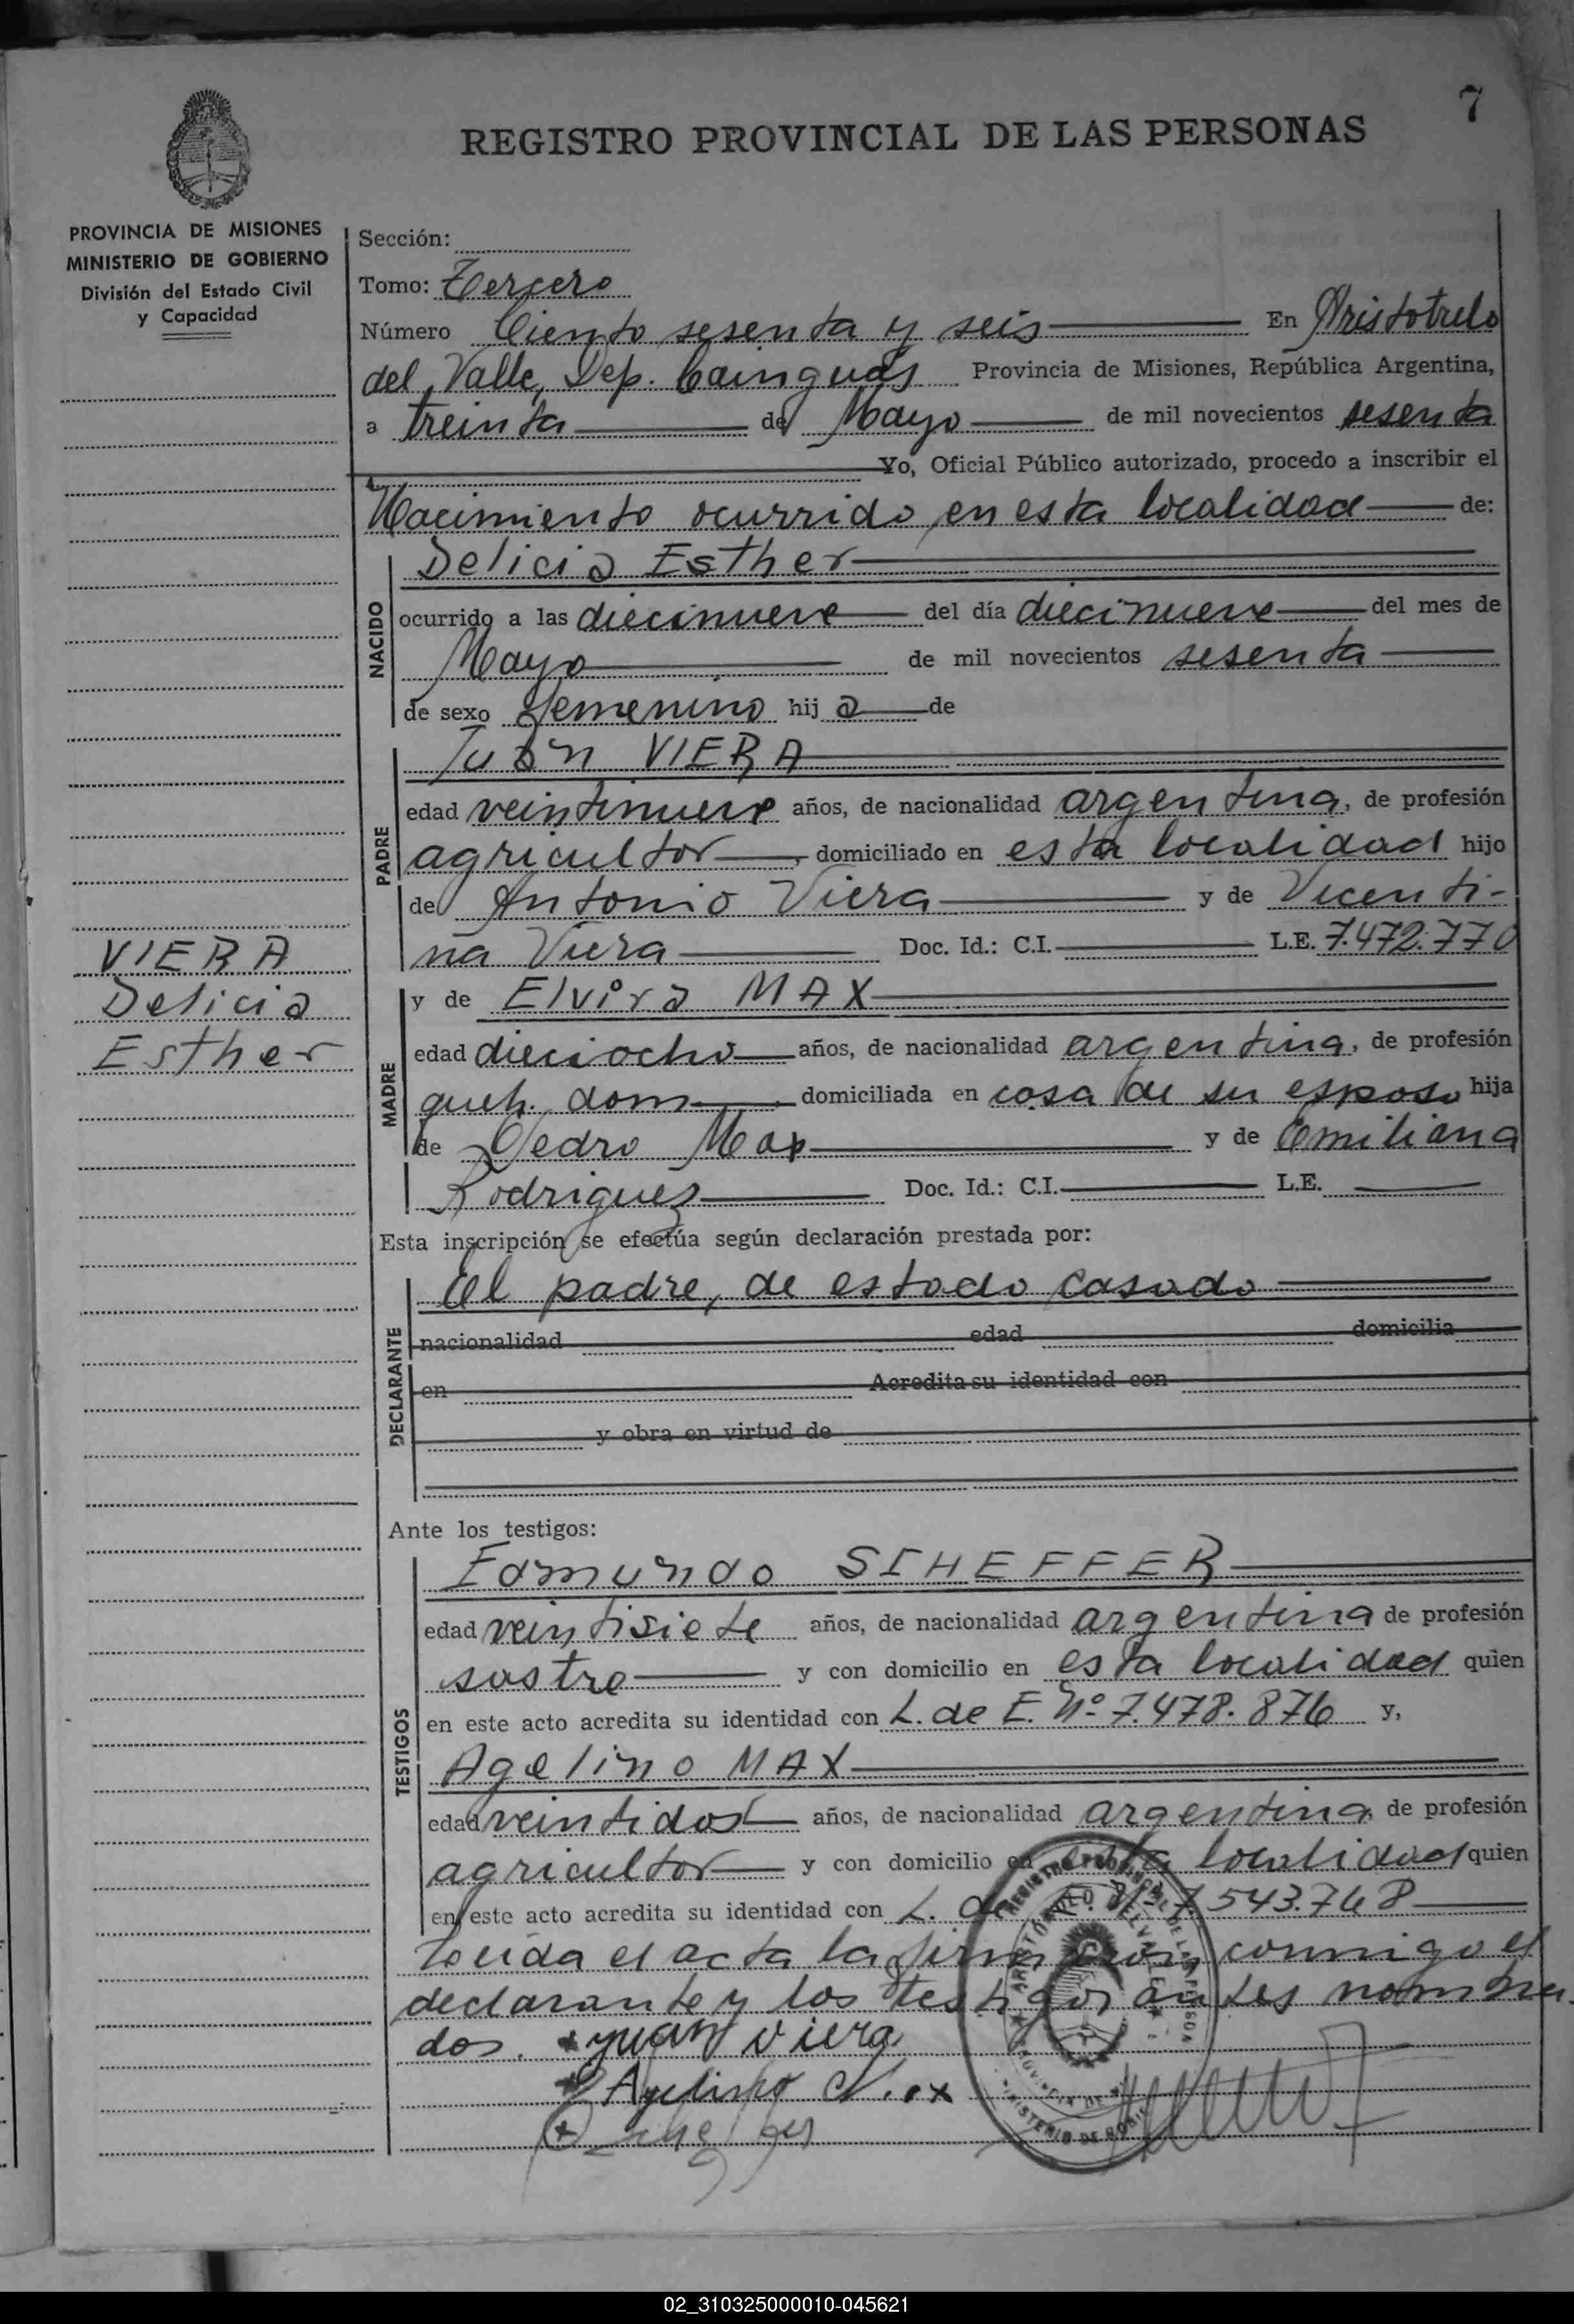 7
REGISTRO PROVINCIAL DE LAS PERSONAS
PROVINCIA DE MISIONES
MINISTERIO DE GOBIERNO
División del Estado Civil
y Capacidad
Sección:
Tomo: Tercero
Número Ciento sesenta y seis En Aristobulo
del Valle, Dep. Cainguás Provincia de Misiones, República Argentina,
a treinta de Mayo de mil novecientos sesenta
Yo, Oficial Público autorizado, procedo a inscribir el
Nacimiento ocurrido en esta localidad de:
NACIDO
Delicia Esther
ocurrido a las diecinueve del día diecinueve del mes de
Mayo de mil novecientos sesenta
de sexo femenino hij a de
PADRE
Juan VIERA
edad veintinueve años, de nacionalidad argentina, de profesión
agricultor, domiciliado en esta localidad hijo
de Antonio Viera y de Vicenti-
na Viera Doc. Id.: C.I. L.E. 7.472.770
VIERA
Delicia
Esther
MADRE
y de Elvira MAX
edad dieciocho años, de nacionalidad argentina, de profesión
queh. dom. domiciliada en casa de su esposo hija
de Pedro Max y de Emiliana
Rodriguez Doc. Id.: C.I. L.E.
Esta inscripción se efectúa según declaración prestada por:
DECLARANTE
El padre, de estado casado
nacionalidad edad domicilia
en Acredita su identidad con
y obra en virtud de
Ante los testigos:
TESTIGOS
Edmundo SCHEFFER
edad veintisiete años, de nacionalidad argentina de profesión
sastre y con domicilio en esta localidad quien
en este acto acredita su identidad con L. de E. Nº 7.478.876 y,
Agelino MAX
edad veintidos años, de nacionalidad argentina, de profesión
agricultor y con domicilio en esta localidad quien
en este acto acredita su identidad con L. de E. Nº 7.543.748
Leida el acta la firmaron conmigo el
declarante y los testigos antes nombra-
dos. Juan Viera
Agelino
02_310325000010-045621